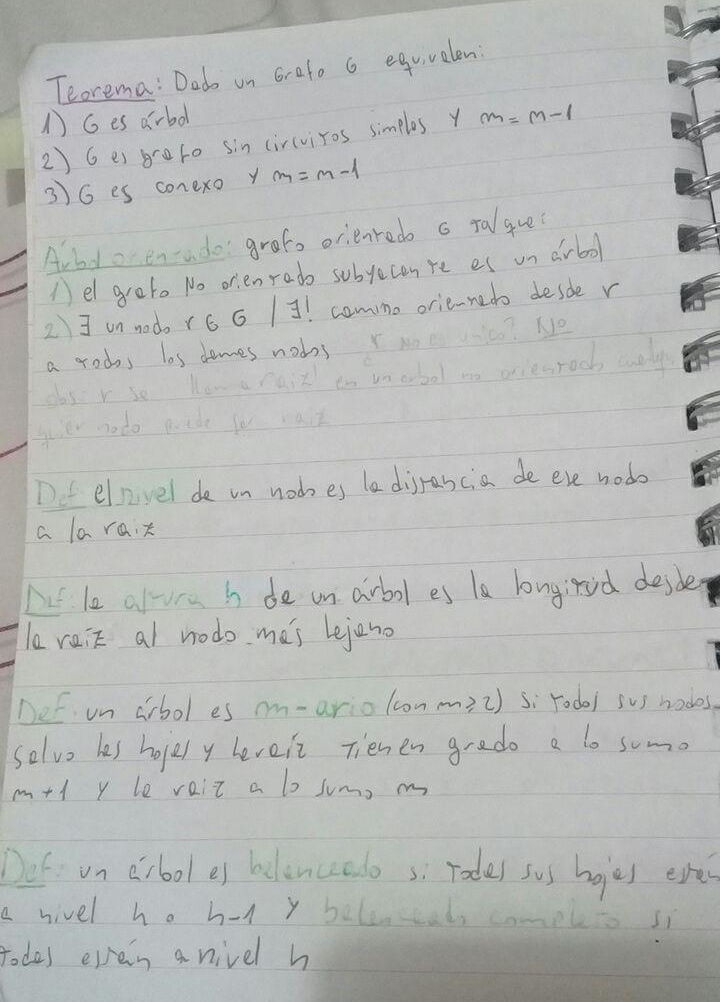 Teorema: Dado un Grafo G equivalen:
1) G es árbol
2) G es grafo sin circuitos simples y m = n-1
3) G es conexo y m = n-1
Árbol orientado: grafo orientado G tal que:
1) el grafo No orientado subyacente es un árbol
2) ∃ un nodo r ∈ G / ∃! camino orientado desde r
a todos los demas nodos ¿r No es unico? No
obs: r se llama raiz en un arbol no orientado cualq
quier nodo puede ser raiz
Def el nivel de un nodo es la distancia de ese nodo
a la raiz
Def: la altura h de un árbol es la longitud desde
la raiz al nodo más lejano
Def: un árbol es m-ario (con m≥2) si todos sus nodos
salvo las hojas y la raiz tienen grado a lo sumo
m+1 y la raiz a lo sumo m
Def: un árbol es balanceado si todas sus hojas están
a nivel h o h-1 y balanceado completo si
todas están a nivel h